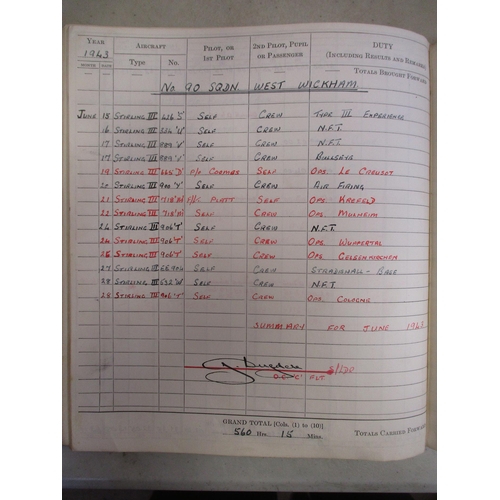 YEAR AIRCRAFT PILOT, OR 2ND PILOT, PUPIL DUTY
1943 1ST PILOT OR PASSENGER (INCLUDING RESULTS AND REMARKS
MONTH DATE Type No.
— — — — — — TOTALS BROUGHT FORWARD
No 90 SQDN. WEST WICKHAM
JUNE 15 STIRLING III 'S' SELF CREW TYPE III EXPERIENCE
16 STIRLING III 'U' SELF CREW N.F.T.
17 STIRLING III SELF CREW N.F.T.
17 STIRLING III SELF CREW BULLSEYE
19 STIRLING III 'D' P/O COOMBS SELF OPS. LE CREUSOT
20 STIRLING III 'Y' SELF CREW AIR FIRING
21 STIRLING III 718 F/L PLATT SELF OPS. KREFELD
22 STIRLING III 718 SELF CREW OPS. MULHEIM
24 STIRLING III 906 'T' SELF CREW N.F.T.
24 STIRLING III 906 'T' SELF CREW OPS. WUPPERTAL
25 STIRLING III 906 'T' SELF CREW OPS. GELSENKIRCHEN
27 STIRLING III SELF CREW STRADISHALL - BASE
28 STIRLING III 'W' SELF CREW N.F.T.
28 STIRLING III 906 'T' SELF CREW OPS. COLOGNE
SUMMARY FOR JUNE 1943
S/LDR
O.C. 'C' FLT.
GRAND TOTAL [Cols. (1) to (10)]
560 Hrs. 15 Mins. TOTALS CARRIED FORWARD